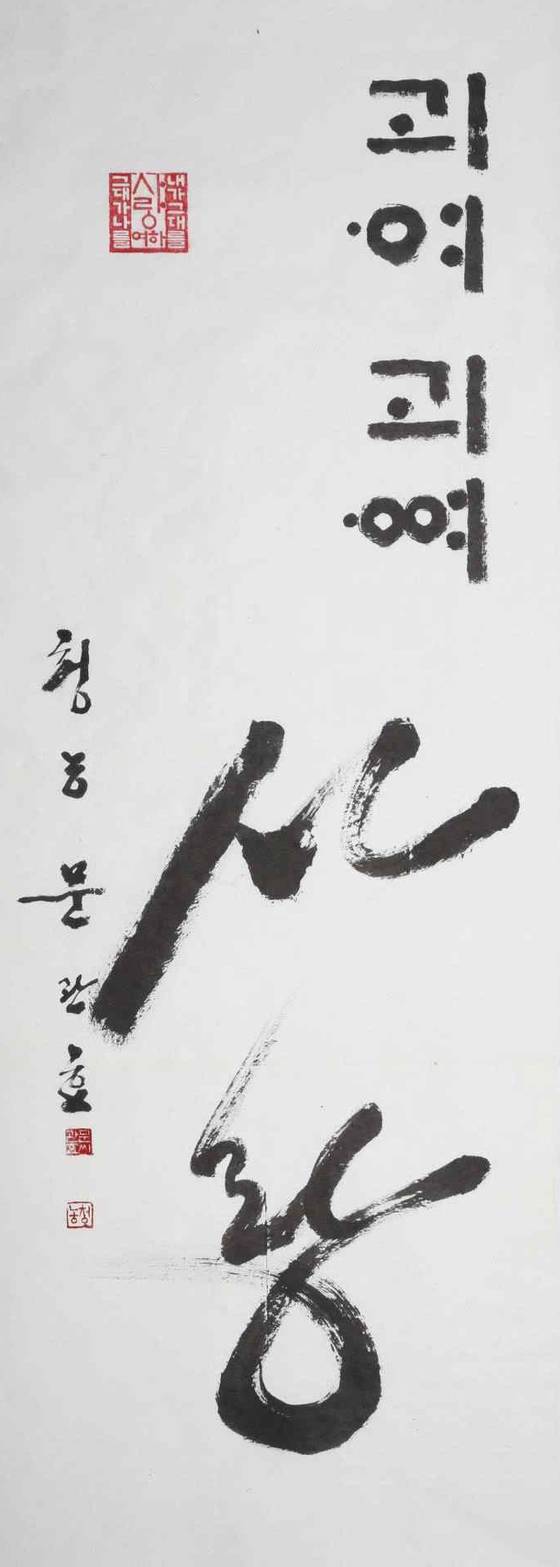 괴여〮
괴ᅇᅧ〮
사랑
내가그대를
사랑하여
그대가나를
청농 문관효
청농